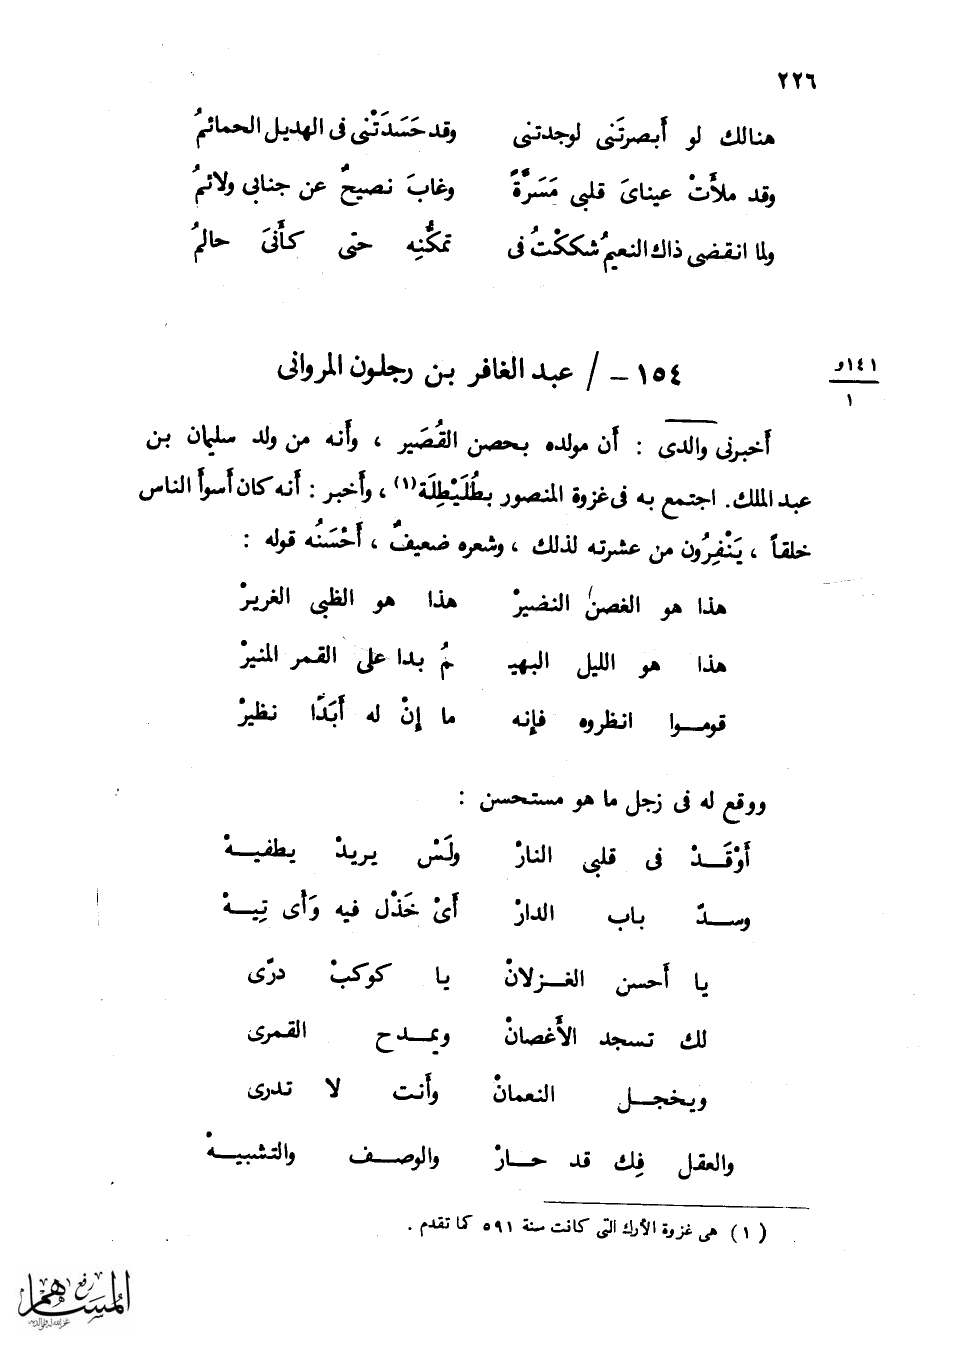 ٢٢٦
هنالك لو أبصرتَنى لوجدتنى وقد حَسَدَتْنى فى الهديل الحمائمُ
وقد ملأتْ عيناىَ قلبى مَسَرَّةً وغابَ نصيحٌ عن جنابى ولائمُ
ولما انقضى ذاك النعيمُ شككْتُ فى تمكُّنِه حتى كأنىَ حالمُ
١٤١و
١
١٥٤ – / عبد الغافر بن رجلون المروانى
أخبرنى والدى : أن مولده بحصن القُصَير ، وأنه من ولد سليمان بن
عبد الملك. اجتمع به فى غزوة المنصور بطُلَيْطِلَة(١) ، وأخبر : أنه كان أسوأ الناس
خلقاً ، يَنْفِرُون من عشرته لذلك ، وشعره ضعيفٌ ، أحْسَنُه قوله :
هذا هو الغصن النضيرْ هذا هو الظبى الغريرْ
هذا هو الليل البهيـ ـمُ بدا على القمر المنيرْ
قومـوا انظروه فإنه ما إنْ له أبَدًا نظيرْ
ووقع له فى زجل ما هو مستحسن :
أوْقَـدْ فى قلبى النارْ ولَسْ يريدْ يطفيـهْ
وسـدّ باب الدارْ أىْ خَذْل فيه وَأى تِيـهْ
يا أحسن الغـزلانْ يا كوكبْ درّى
لك تسجد الأغصانْ ويمـدح القمرى
ويخجـل النعمانْ وأنت لا تدرى
والعقل فِك قد حـارْ والوصـف والتشبيـهْ
(١) هى غزوة الأرك التى كانت سنة ٥٩١ كما تقدم .
رفع
المساهم